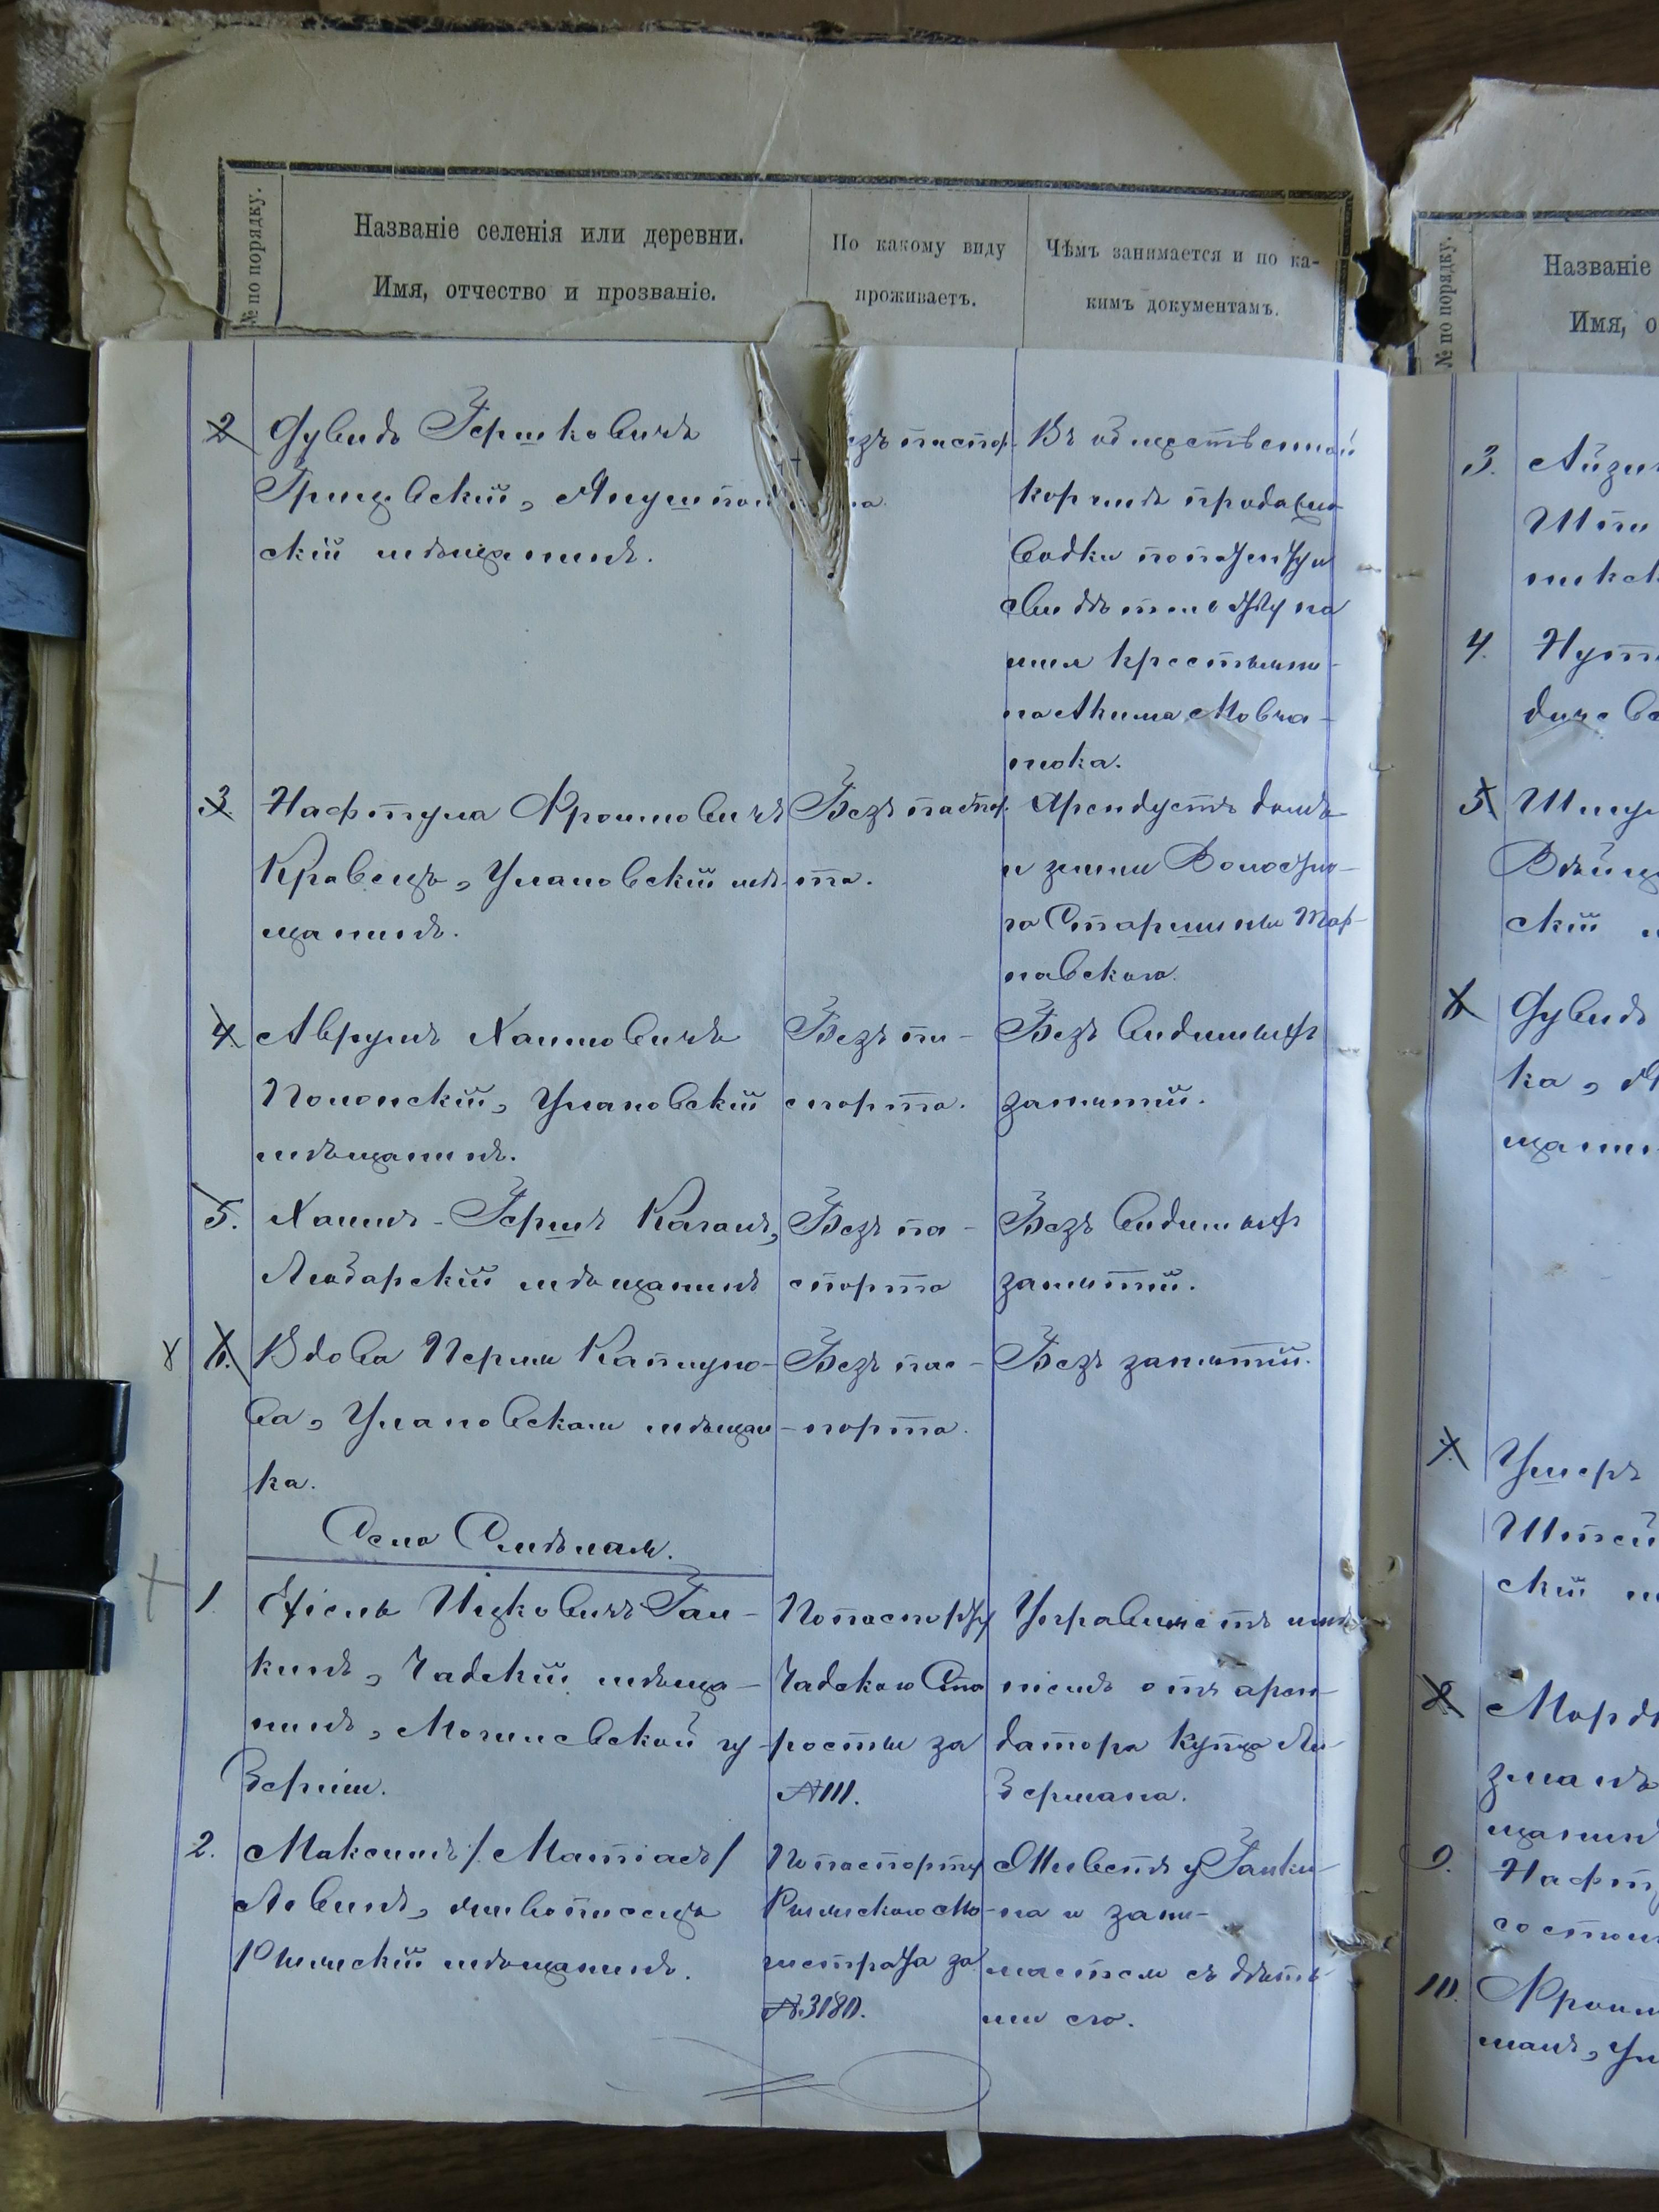 № по порядку.
Названіе селенія или деревни.
Имя, отчество и прозваніе.
По какому виду
проживаетъ.
Чѣмъ занимается и по ка-
кимъ документамъ.
2 Дувидъ Гершковичъ
Грищевскій, Янушпол
скій мѣщанинъ.
езъ паспор-
та.
Въ общественной
корчмѣ продажа
водки по патенту и
свидѣтельству на
имя крестьяни-
на Акима Мовча-
нюка.
3. Нафтула Фроимовичъ
Кравецъ, Улановскій мѣ-
щанинъ.
Безъ паспор-
та.
Арендуетъ домъ
и земли Волостно-
го Старшины Тар-
навского.
4. Аврумъ Хаимовичъ
Полонскій, Улановскій
мѣщанинъ.
Безъ па-
спорта.
Безъ видимыхъ
занятій.
5. Хаимъ-Гершъ Каганъ,
Любарскій мѣщанинъ
Безъ па-
спорта
Безъ видимыхъ
занятій.
6. Вдова Перля Каплуно-
ва, Улановская мѣщан-
ка.
Безъ пас-
порта.
Безъ занятій.
Село Смѣлая.
1. Ицковичъ Гал-
кинъ, Чадскій мѣща-
нинъ, Могилевской гу-
берніи.
По паспорту
Чадского Ста
росты за
№111.
Управляетъ имѣ
ніемъ отъ арен-
датора купца Ли-
бермана.
2. Максимъ / Матіасъ /
Левинъ, живописецъ
Рижскій мѣщанинъ.
По паспорту
Рижского Ма-
гистрата за
№3180.
Живетъ у Галки-
на и зани-
мается съ дѣтъ
ми его.
№ по порядку.
Названіе
Имя, о
3. Айзи
4.
5.
скій м
6 Дувидъ
ка, Я
щани
7.
скій м
8. Морд
щанин
9. Нафт
10. Фроим
манъ, Ул